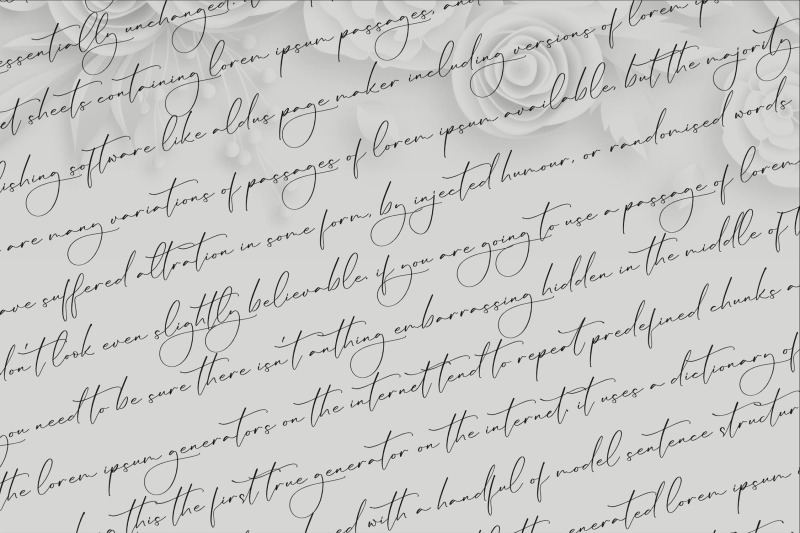 essentially unchanged.
et sheets containing lorem ipsum passages, and
ishing software like aldus page maker including versions of lorem ips
are many variations of passages of lorem ipsum available, but the majority
ave suffered altration in some form, by injected humour, or randomised words
don't look even slightly believable. if you are going to use a passage of lorem
you need to be sure there isn't anthing embarrassing hidden in the middle of t
the lorem ipsum generators on the internet tend to repeat predefined chunks a
this the first true generator on the internet, it uses a dictionary of
ed with a handful of model sentence structur
enerated lorem ipsum